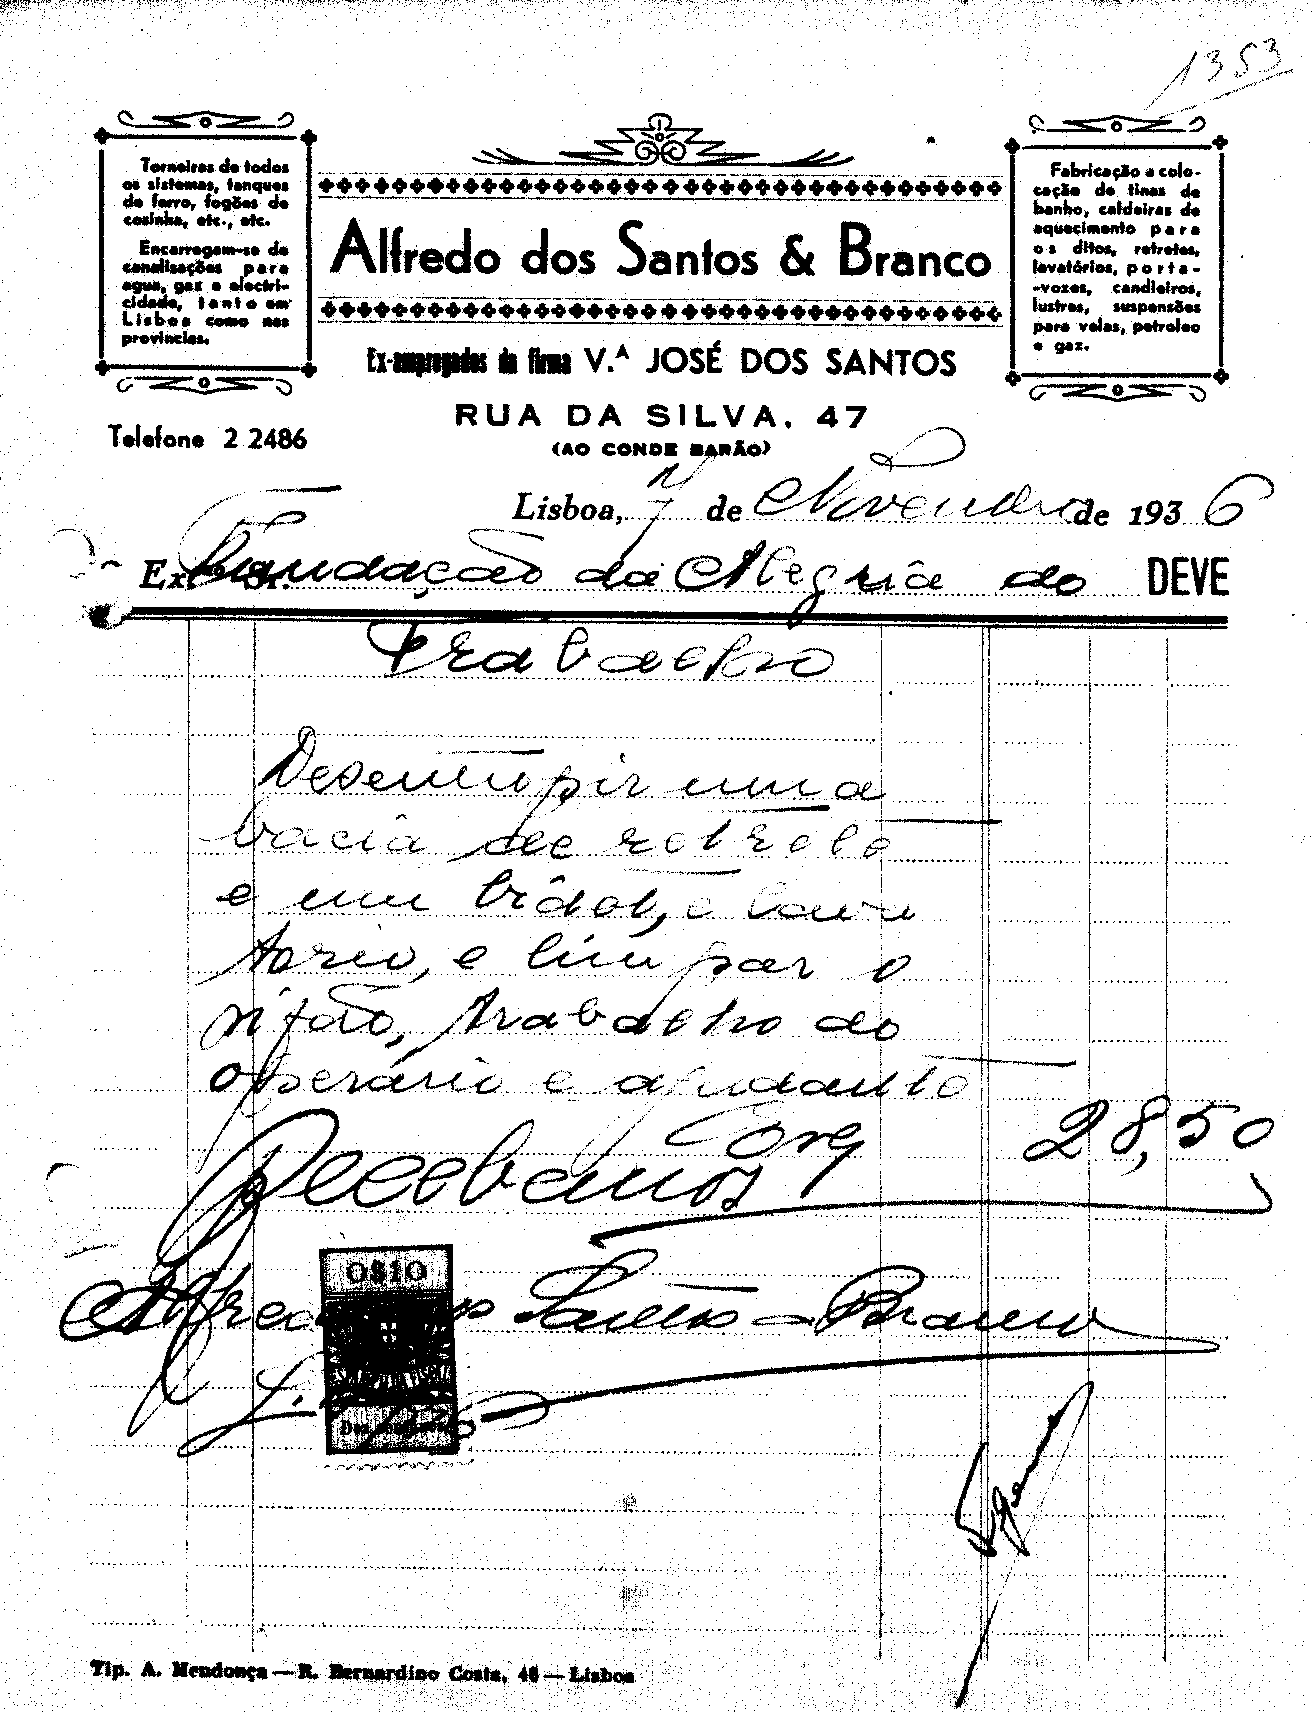 1353
Torneiras de todos
os sistemas, tanques
de ferro, fogões de
cosinha, etc., etc.
Encarregam-se de
canalisações para
agua, gaz e electri-
cidade, tanto em
Lisboa como nas
provincias.
Alfredo dos Santos & Branco
Ex-empregados da firma V.ᴬ JOSÉ DOS SANTOS
RUA DA SILVA, 47
(AO CONDE BARÃO)
Fabricação e colo-
cação de tinas de
banho, caldeiras de
aquecimento para
os ditos, retretes,
lavatórios, porta-
-vozes, candieiros,
lustres, suspensões
para velas, petroleo
e gaz.
Telefone 2 2486
Lisboa, 7 de Novembro de 1936
Ex.mo Sr. Fundação da Alegria do DEVE
Trabalho
Desentopir uma
bacia de retrete
e um bidet, e lava
torio, e limpar o
sifão, trabalho do
operário e ajudante
Esq 28,50
Recebemos
Alfredo dos Santos e Branco
OS10
Tip. A. Mendonça — R. Bernardino Costa, 46 — Lisboa